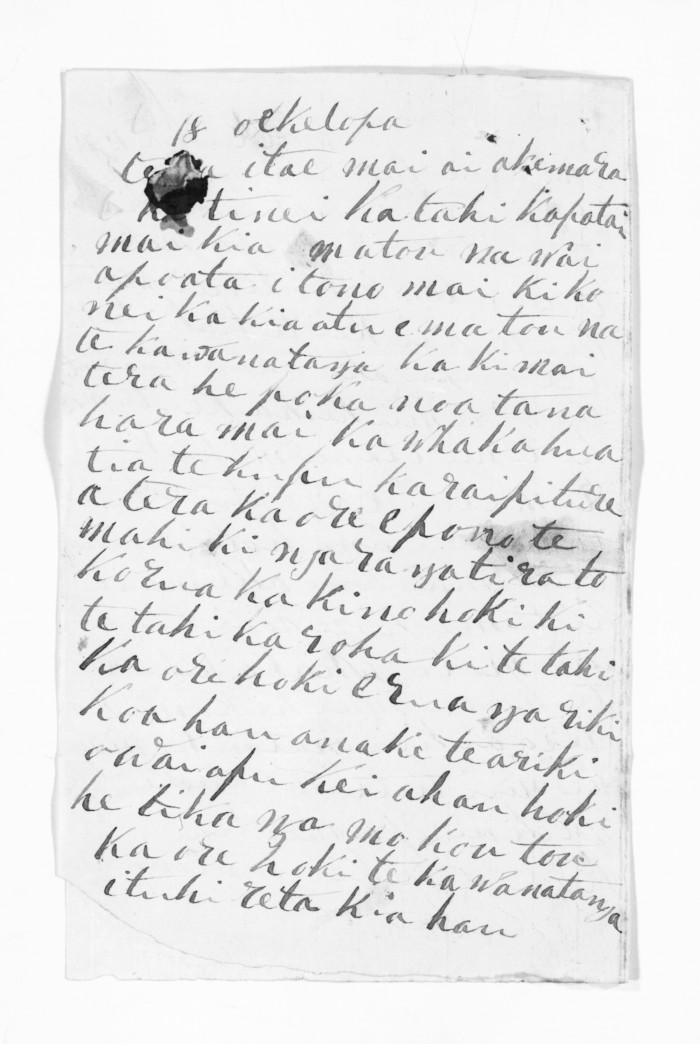 18 ockelopa
itae mai ai akemara
tinei ka taki kapatai
mai kia matou na wai
apoata i tono mai ki ko
nei ka kia atu e ma tou na
te kawanatanga ka ki mai
tera he poka noa tana
hara mai ka whakahua
tia te kupu karaipiture
a tera ka ore e pono te
mahi ki nga ra ngatira to
korua ka kino hoki ki
te tahi ka roha ki te tahi
ka ore hoki e rua nga riki
koa hau anake te ariki
o wai apu kei ahau hoki
he tika nga mo kou tou
ka ore hoki te kawanatanga
i tuhi reta kia hau